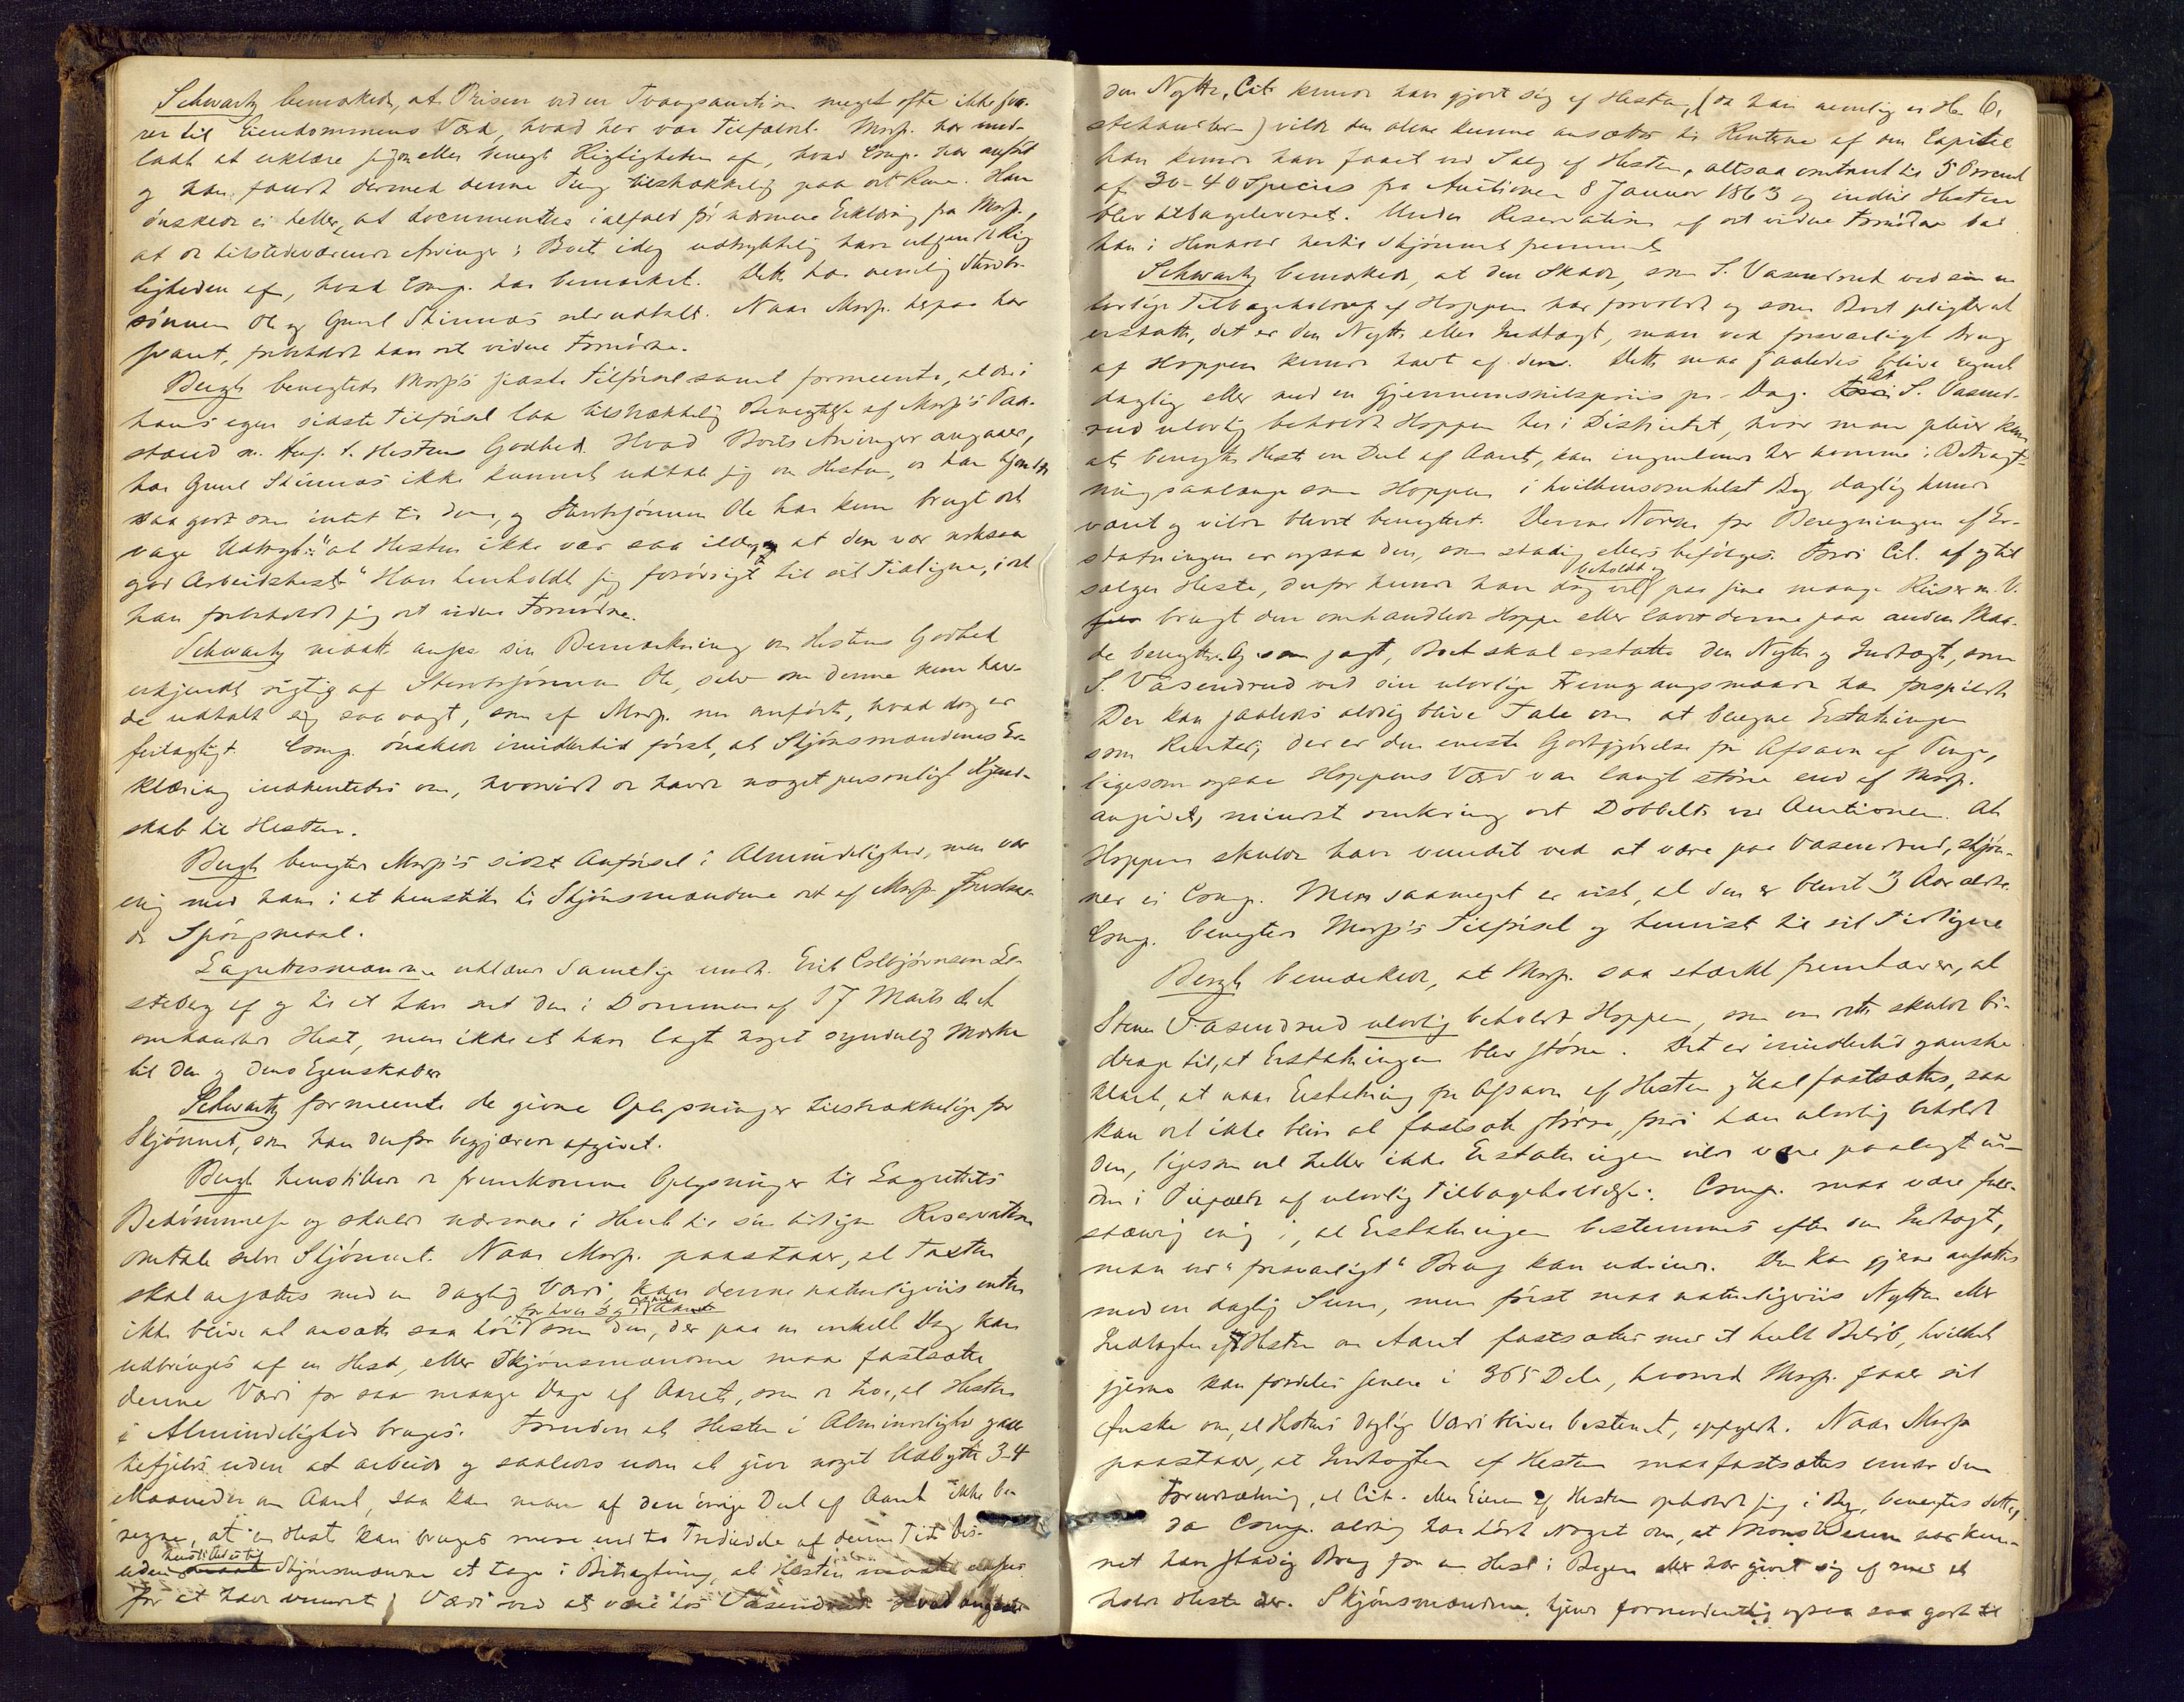 Schwartz bemærkede, at Prisen ved en Tvangsauction meget ofte ikke sva-
rer til Eiendommens Værd, hvad her var Tilfældet. Modp. har und-
ladt at erklære sig om eller benegte Rigtigheden af, hvad Comp. har anført
og han fandt dermed denne Ting tilstrækkelig paa det Rene. Han
ønskede ei heller, at documentes ialfald før nærmere Erklæring fra Modp.,
at de tilstedeværende Arvinger i Boet idag udtrykkelig have vedgaaet Rig
tigheden af, hvad Comp. har bemærket. Dette har nemlig Stervbo-
sønnen Ole og Gunl Skinnæs selv udtalt. Naar Modp. herpaa har
svaret, forbeholdt han det videre Fornødne.
Bergh benegtede Modp's sidste Tilførsel samt formeente, at der i
hans egen sidste Tilførsel laa tilstrækkelig Benegtelse af Modp's Paa-
stand m. Hens. t. Hestens Godhed. Hvad Boets Arvinger angaaer,
har Gunl Skinnæs ikke kunnet udtale sig om Hesten, da han kjendte
saa godt som intet til den, og Stervbosønnen Ole har kun brugt det
vage Udtryk: "at Hesten ikke var saa ilde, og at den var noksaa
god Arbeidshest." Han henholdt sig forøvrigt til sit Tidligere, idet
han forbeholdt sig det videre Fornødne.
Schwartz maatte ansee sin Bemærkning om Hestens Godhed
erkjendt rigtig af Stervbosønnen Ole, selv om denne kun hav-
de udtalt sig saa vagt, som af Modp. nu anført, hvad dog er
feilagtigt. Comp. ønskede imidlertid først, at Skjønsmændenes Er-
klæring indhentedes om, hvorvidt de havde noget personligt Kjend-
skab til Hesten.
Bergh benegter Modp's sidste Anførsel i Almindelighed, men var
enig med ham i at henstille til Skjønsmændene det af Modp. fremsæt-
te Spørgsmaal.
Lagrettesmændene erklærede samtlige undt. Erik Esbjørnsen Le
steberg af og til at have set den i Dommen af 17 Marts d. A.
omhandlede Hest, men ikke at have lagt noget synderlig Mærke
til den og dens Egenskaber.
Schwartz formeente de givne Oplysninger tilstrækkelige for
Skjønnet, som han derfor begjærede afgivet.
Bergh henstillede de fremkomne Oplysninger til Lagrettets
Bedømmelse og skulde nærmere i Henh. til sin tidligere Reservation
omtale selve Skjønnet. Naar Modp. paastaaer, at Taxten
skal ansættes med en daglig Værdi, kan denne naturligviis enten
for hver Dag i Aaret
ikke blive at ansætte saa høit som den, der paa en enkelt Dag kan
udbringes af en Hest, eller Skjønsmændene maa fastsætte
denne Værdi for saa mange Dage af Aaret, som de tro, at Hesten
i Almindelighed bruges. Foruden at Hesten i Almindelighed gaaer
tilfjelds uden at arbeide og saaledes uden at give noget Udbytte 3-4
Maaneder om Aaret, saa kan man af den øvrige Deel af Aaret ikke be-
regne, at en Hest kan bruges mere end to Trediedele af denne Tid. Des-
henstilledes til
uden Skjønsmændene at tage i Betragtning, at Hesten maatte ansees
for at have vundet i Værdi ved at være hos Vasendrud. Hvad angaaer
6.
den Nytte, Cit. kunde have gjort sig af Hesten, (da han nemlig er He
stehandler) vilde den alene kunne ansættes til Renterne af den Capital
han kunde have faaet ved Salg af Hesten, altsaa omtrent til 5 Procent
af 30-40 Species fra Auctionen 8 Januar 1863 og indtil Hesten
blev tilbageleveret. Under Reservation af det videre Fornødne bad
han i Henhold hertil Skjønnet fremmet.
Schwartz bemærkede, at den Skade, som S. Vasendrud ved sin u
lovlige Tilbageholdelse af Hoppen har forvoldt og som Boet pligter at
erstatte, det er den Nytte eller Indtægt, man ved forsvarligt Brug
af Hoppen kunde havt af den. Dette maa saaledes blive regnet
daglig eller med en Gjennemsnitspriis pr. Dag. At S. Vasend-
rud ulovlig beholdt Hoppen her i Districtet, hvor man pleier kun
at benytte Heste en Deel af Aaret, kan ingenlunde her komme i Betragt-
ning saalænge som Hoppen i hvilkensomhelst By daglig kunde
været og vilde blevet benyttet. Denne Norm for Beregningen af Er-
statningen er ogsaa den, som stadig ellers befølges. Fordi Cit. af og til
beholdt og
sælger Heste, derfor kunde han dog vel paa sine mange Reiser m. V.
brugt den omhandlede Hoppe eller ladet denne paa anden Maa-
de benytte. Og som sagt, Boet skal erstatte den Nytte og Indtægt, som
S. Vasendrud ved sin ulovlige Fremgangsmaade har forspildt.
Der kan saaledes aldrig blive Tale om at beregne Erstatningen
som Renter; der er den eneste Godtgjørelse for Afsavn af Penge,
ligesom ogsaa Hoppens Værd var langt større end af Modp.
angivet, mindst omkring det Dobbelte ved Auctionen. At
Hoppen skulde have vundet ved at være paa Vasendrud, skjøn-
ner ei Comp. Men saameget er vist, at den er blevet 3 Aar ældre.
Comp. benegter Modp's Tilførsel og henviste til sit Tidligere.
Bergh bemærkede, at Modp. saa stærkt fremhæver, at
Steen Vasendrud ulovlig beholdt Hoppen, som om dette skulde bi-
drage til, at Erstatningen blev større. Det er imidlertid ganske
klart, at naar Erstatning for Afsavn af Hesten skal fastsættes, saa
kan det ikke blive at fastsætte større, fordi han ulovlig beholdt
den, ligesom vel heller ikke Erstatningen vilde være paalagt u-
den i Tilfælde af ulovlig Tilbageholdelse. Comp. maa være fuld-
stændig enig i, at Erstatningen bestemmes efter den Indtægt,
man ved "forsvarligt" Brug kan udvinde. Den kan gjerne ansættes
med en daglig Sum, men først maa naturligviis Nytten eller
Indtægten af Hesten om Aaret fastsættes med et heelt Beløb, hvilket
gjerne kan fordeles senere i 365 Dele, hvorved Modp. faaer sit
Ønske om, at Hestens daglige Værdi bliver bestemt, opfyldt. Naar Modp.
paastaaer, at Indtægten af Hesten maa fastsættes under den
Forudsætning, at Cit. eller Eieren af Hesten opholdt sig i By, benegtes dette,
da Comp. aldrig har hørt Noget om, at Mons Veum har kun-
net have stadig Brug for en Hest i Bergen eller har gjort sig af med at
holde Heste der. Skjønsmændene kjende formodentlig ogsaa saa godt til